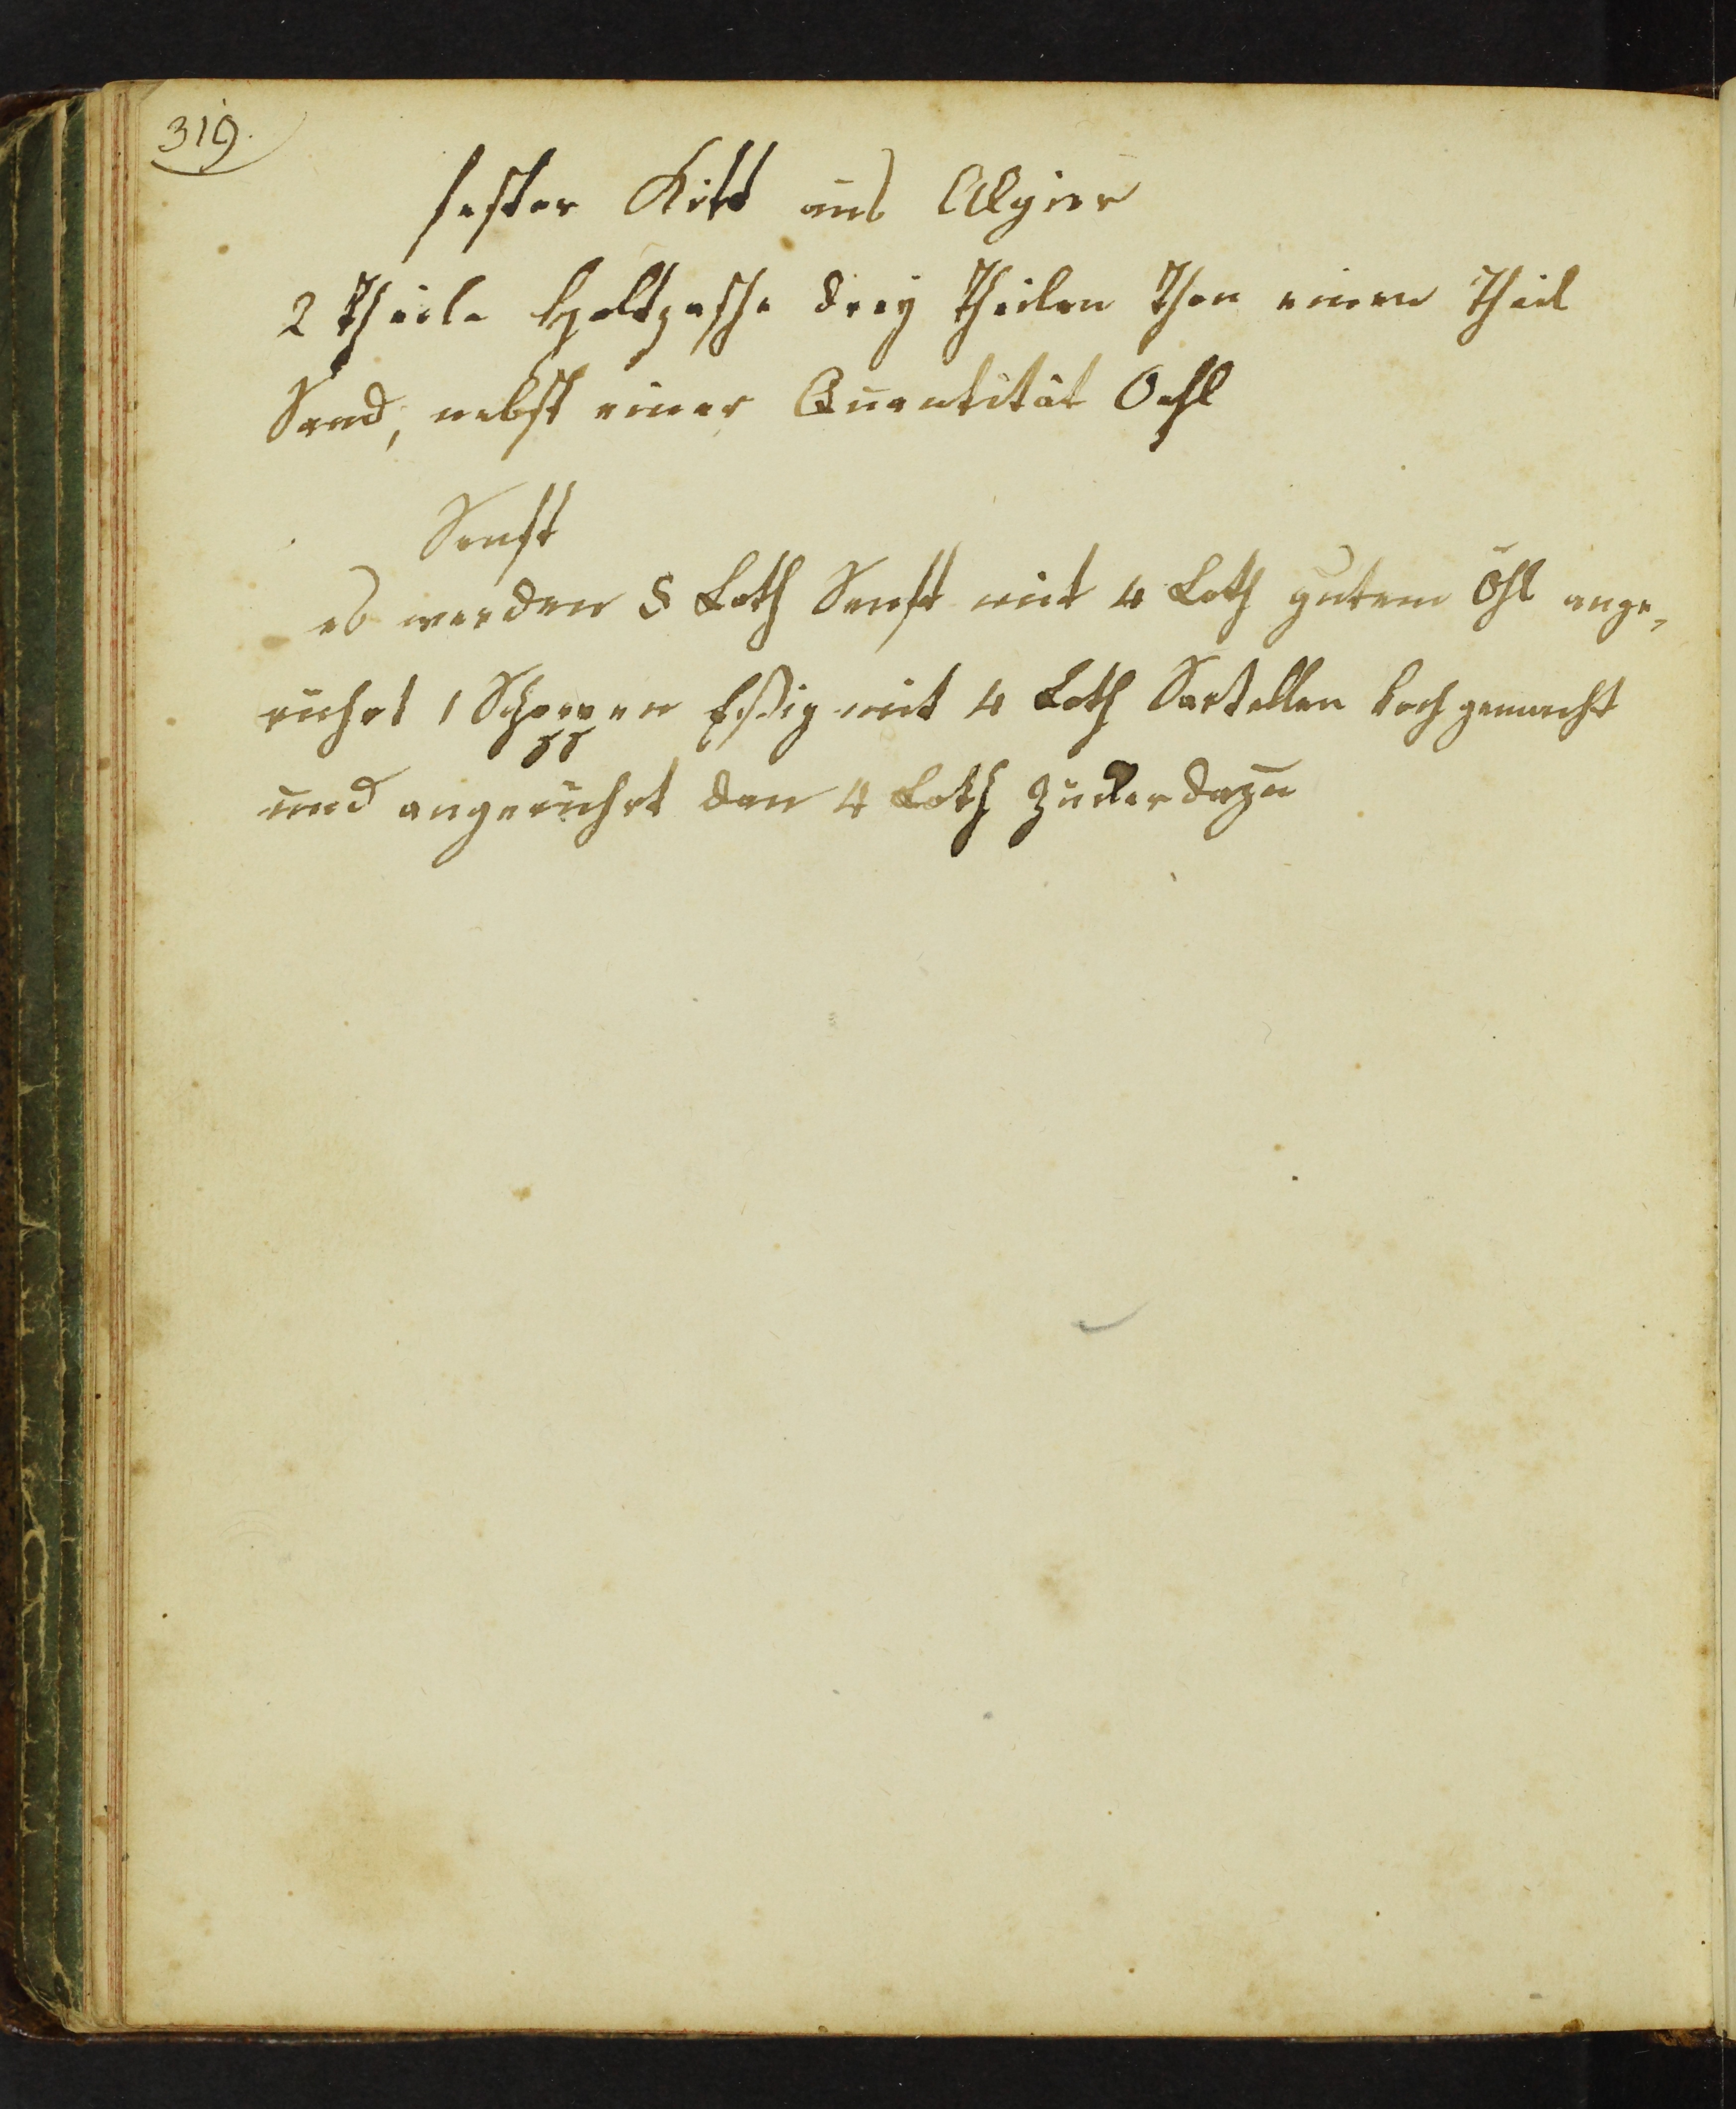 319.
fester Kitt aus Algier
2 Theile Holtzasche drey Theilen Thon einen Theil
Sand, nebst einer Quantität Oehl
Senft
es werden 8 Loth Senft mit 4 Loth gutem Öhl ange,
rührt 1 Schoppen Eßig mit 4 Loth Sartellen kochgemacht
und angerührt dan 4 Loth Zucker dazu